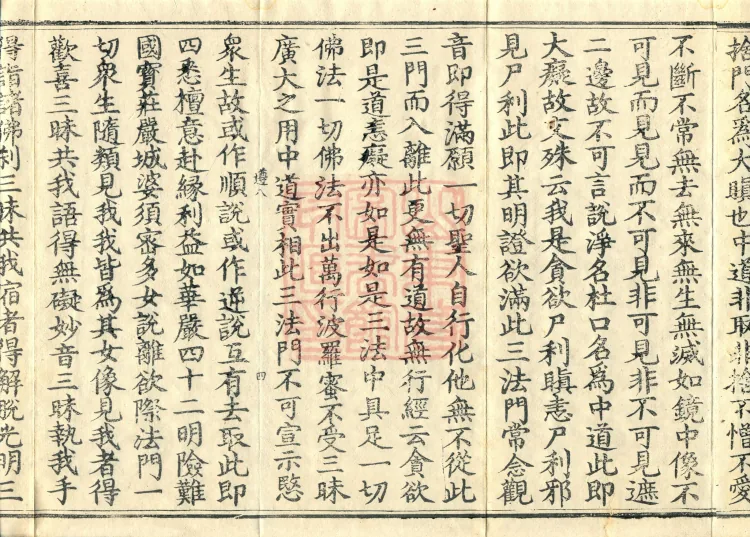 捨門名爲大瞋也中道非取非捨不憎不愛
不斷不常無去無來無生無滅如鏡中像不
可見而見見而不可見非可見非不可見遮
二邊故不可言說淨名杜口名爲中道此即
大癡故文殊云我是貪欲尸利瞋恚尸利邪
見尸利此即其明證欲滿此三法門常念觀
音即得滿願一切聖人自行化他無不從此
三門而入離此更無有道故無行經云貪欲
即是道恚癡亦如是如是三法中具足一切
佛法一切佛法不出萬行波羅蜜不受三昧
廣大之用中道實相此三法門不可宣示愍
遵八 四
衆生故或作順說或作逆說互有去取此即
四悉檀意赴緣利益如華嚴四十二明險難
國寶莊嚴城婆須蜜多女說離欲際法門一
切衆生隨類見我我皆爲其女像見我者得
歡喜三昧共我語得無礙妙音三昧執我手
得詣諸佛刹三昧共我宿者得解脫光明三